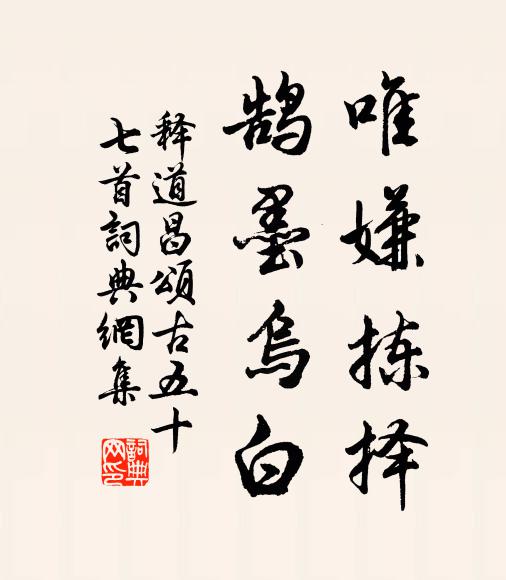 唯嫌拣择
鹄墨乌白
释道昌颂古五十
七首词典網集
詞典網印